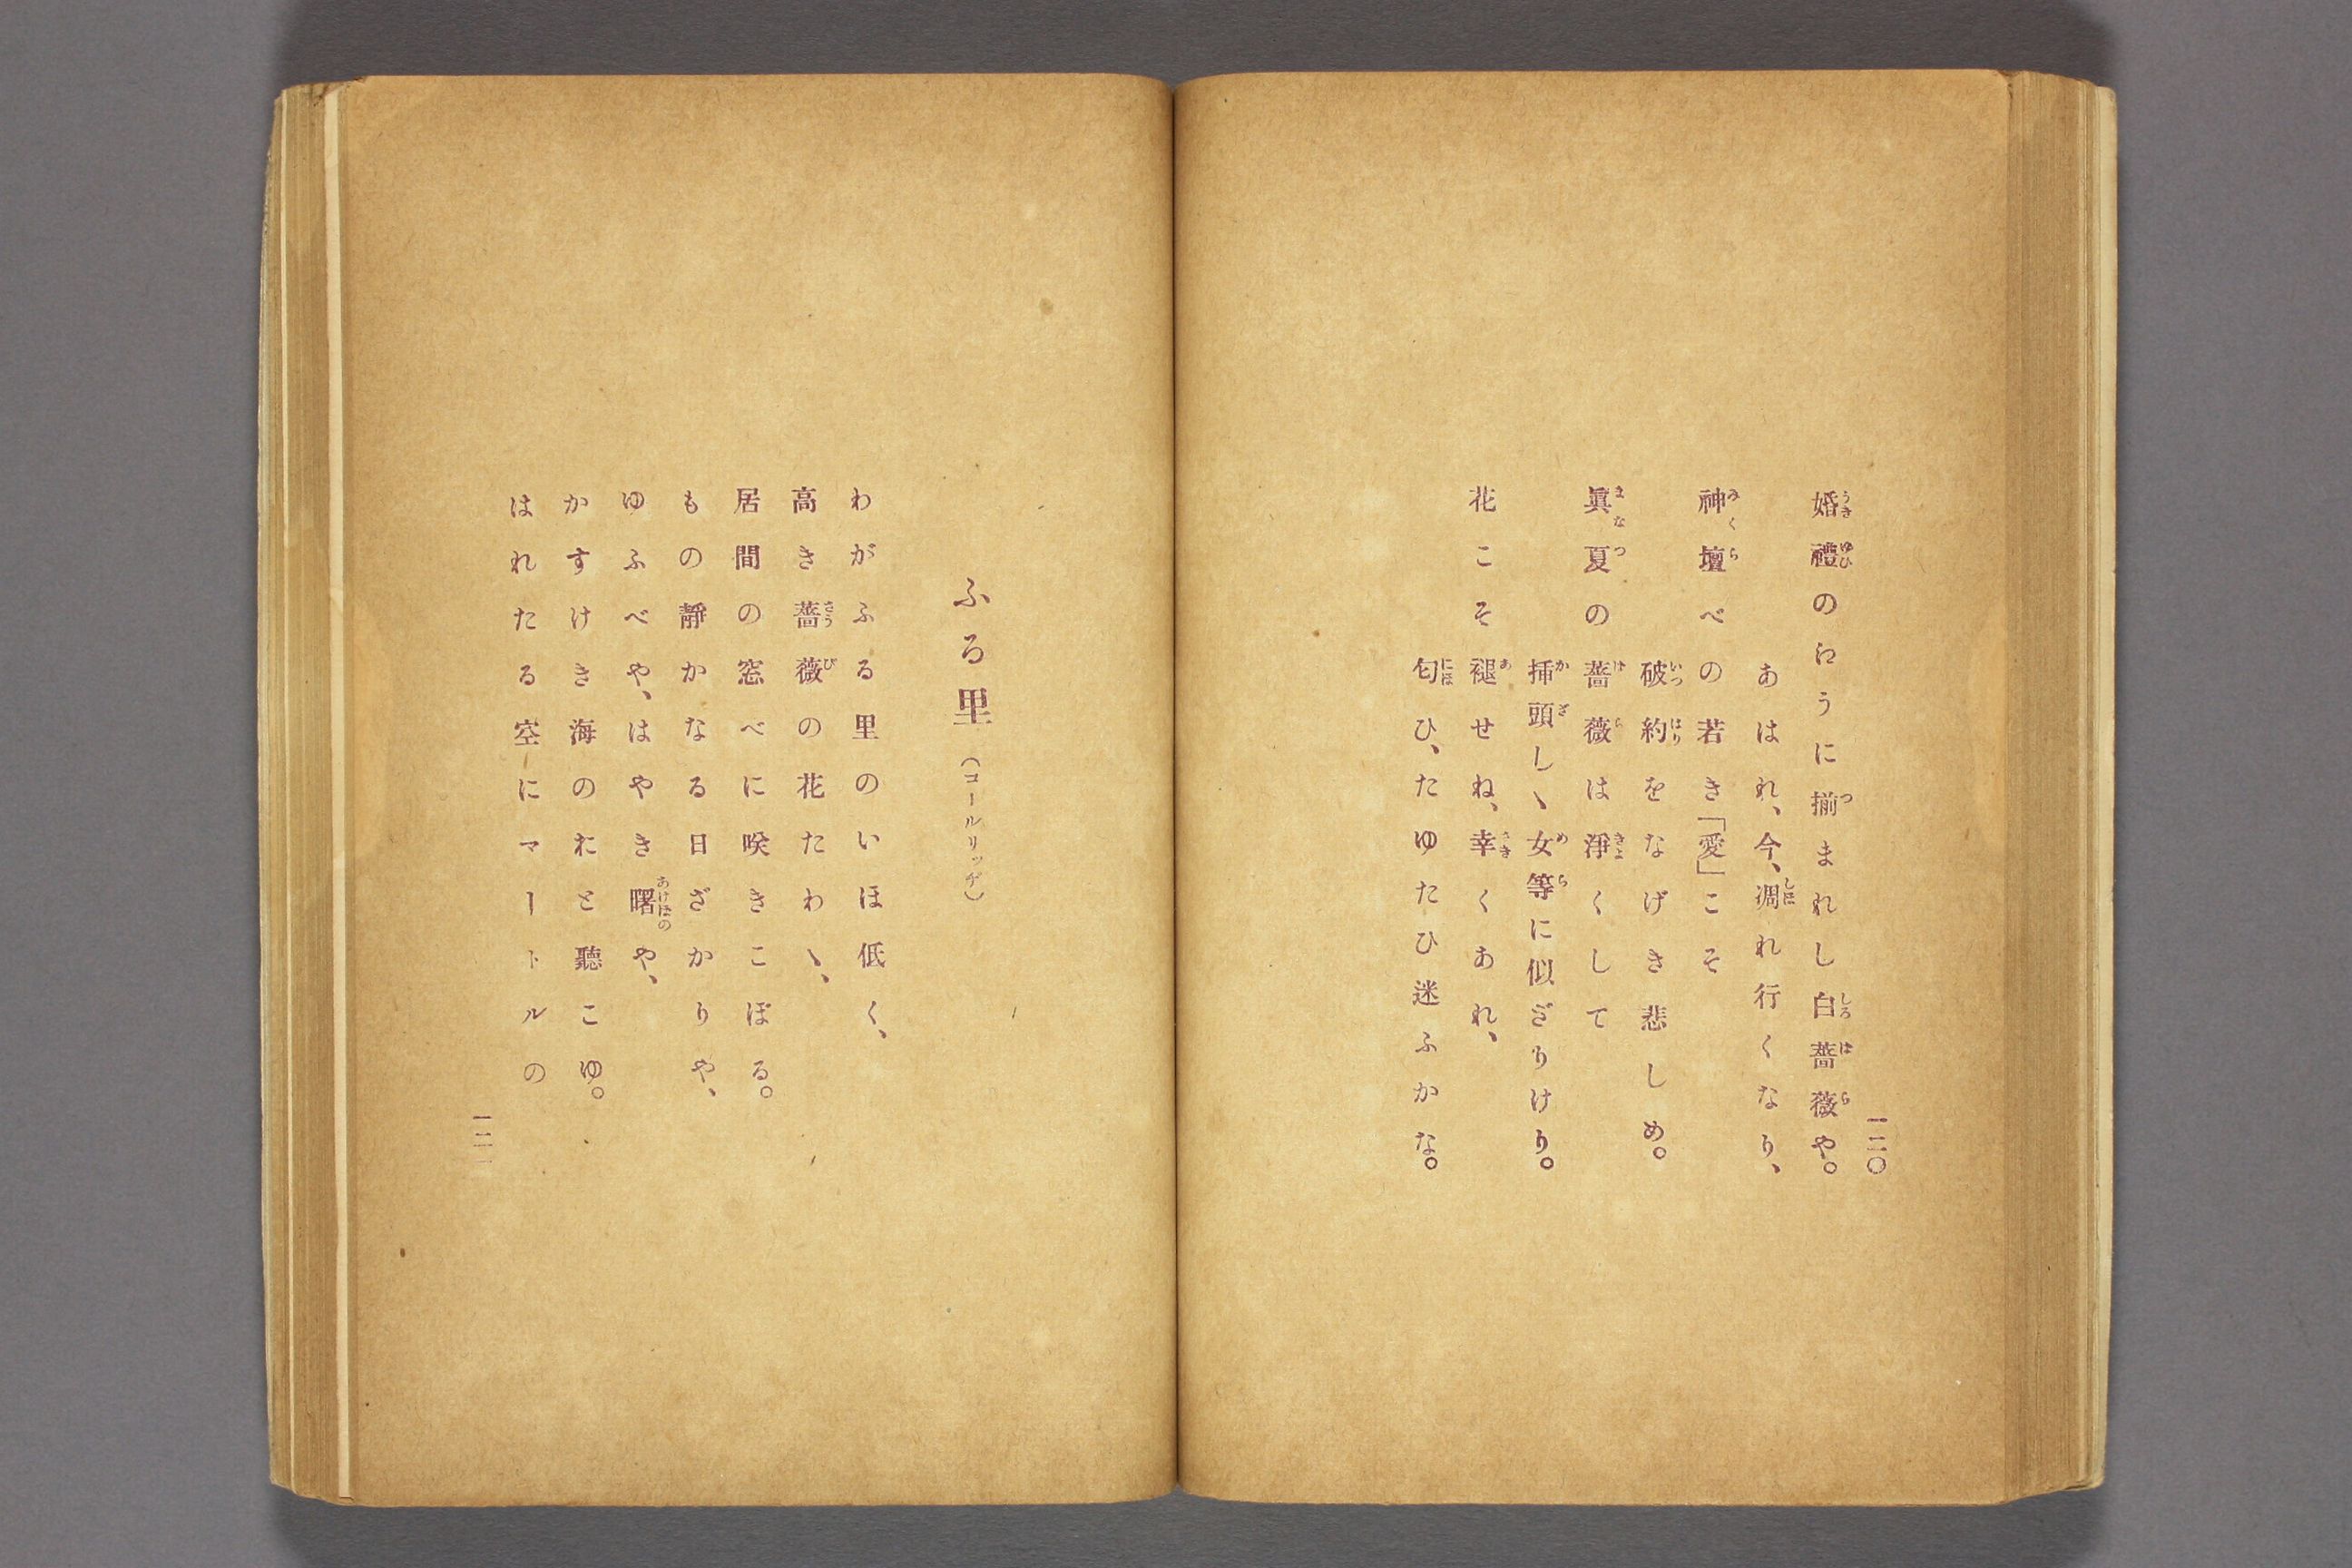 一二〇
婚禮のれうに揃まれし白薔薇や。
あはれ、今、凋れ行くなり、
神壇べの若き「愛」こそ
破約をなげき悲しめ。
眞夏の薔薇は淨くして
挿頭しゝ女等に似ざりけり。
花こそ褪せね、幸くあれ、
匂ひ、たゆたひ迷ふかな。
ふる里（コールリッヂ）
わがふる里のいほ低く、
高き薔薇の花たわゝ、
居間の窓べに咲きこぼる。
もの靜かなる日ざかりや、
ゆふべや、はやき曙や、
かすけき海のおと聽こゆ。
はれたる空にマートルの
一二一